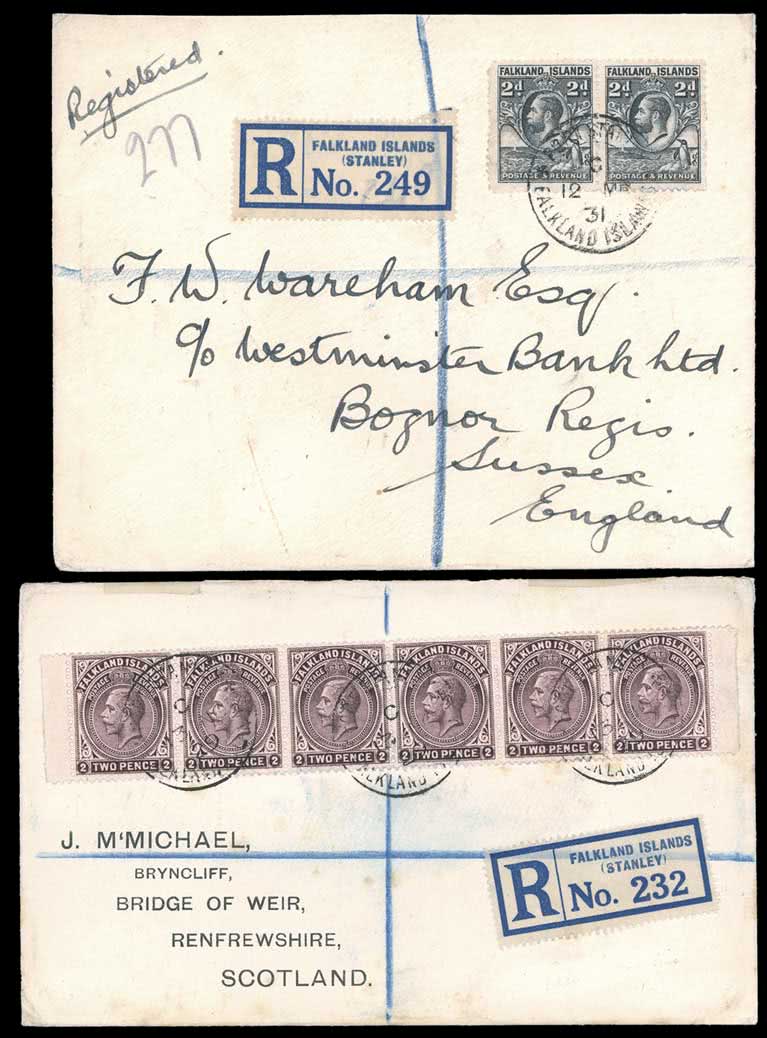 Registered.
277
R
FALKLAND ISLANDS
(STANLEY)
No. 249
FALKLAND ISLANDS
2d 2d
POSTAGE & REVENUE
FALKLAND ISLANDS
2d 2d
POSTAGE & REVENUE
C
12 MR
31
FALKLAND ISLANDS
F. W. Wareham Esq.
c/o Westminster Bank Ltd.
Bognor Regis.
Sussex
England
FALKLAND ISLANDS
POSTAGE REVENUE
2 TWO PENCE 2
FALKLAND ISLANDS
POSTAGE REVENUE
2 TWO PENCE 2
FALKLAND ISLANDS
POSTAGE REVENUE
2 TWO PENCE 2
FALKLAND ISLANDS
POSTAGE REVENUE
2 TWO PENCE 2
FALKLAND ISLANDS
POSTAGE REVENUE
2 TWO PENCE 2
FALKLAND ISLANDS
POSTAGE REVENUE
2 TWO PENCE 2
C
FALKLAND
C
FALKLAND
C
FALKLAND
J. M‘MICHAEL,
BRYNCLIFF,
BRIDGE OF WEIR,
RENFREWSHIRE,
SCOTLAND.
R
FALKLAND ISLANDS
(STANLEY)
No. 232